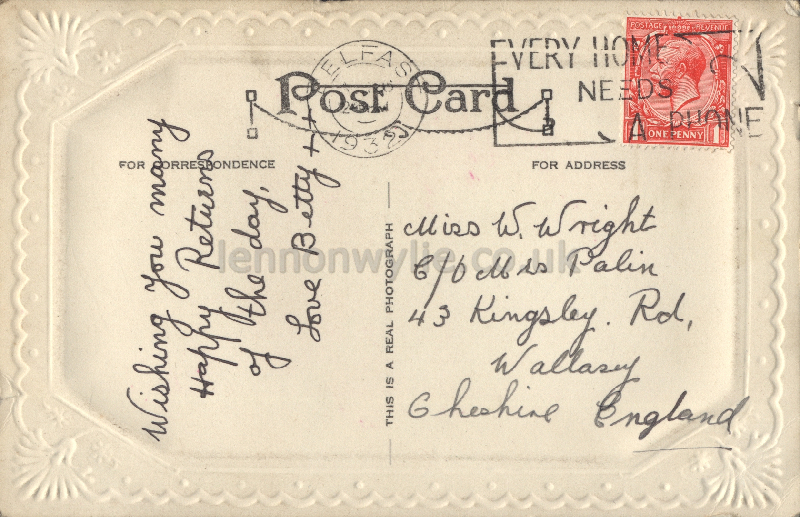 BELFAST
1932
EVERY HOME
NEEDS
A PHONE
POSTAGE
ONE PENNY
Post Card
FOR CORRESPONDENCE
FOR ADDRESS
Wishing you many
Happy Returns
of the day,
Love Betty + +
THIS IS A REAL PHOTOGRAPH
Miss W. Wright
C/O Mrs Palin
43 Kingsley. Rd,
Wallasey
Cheshire England
lennonwylie.co.uk